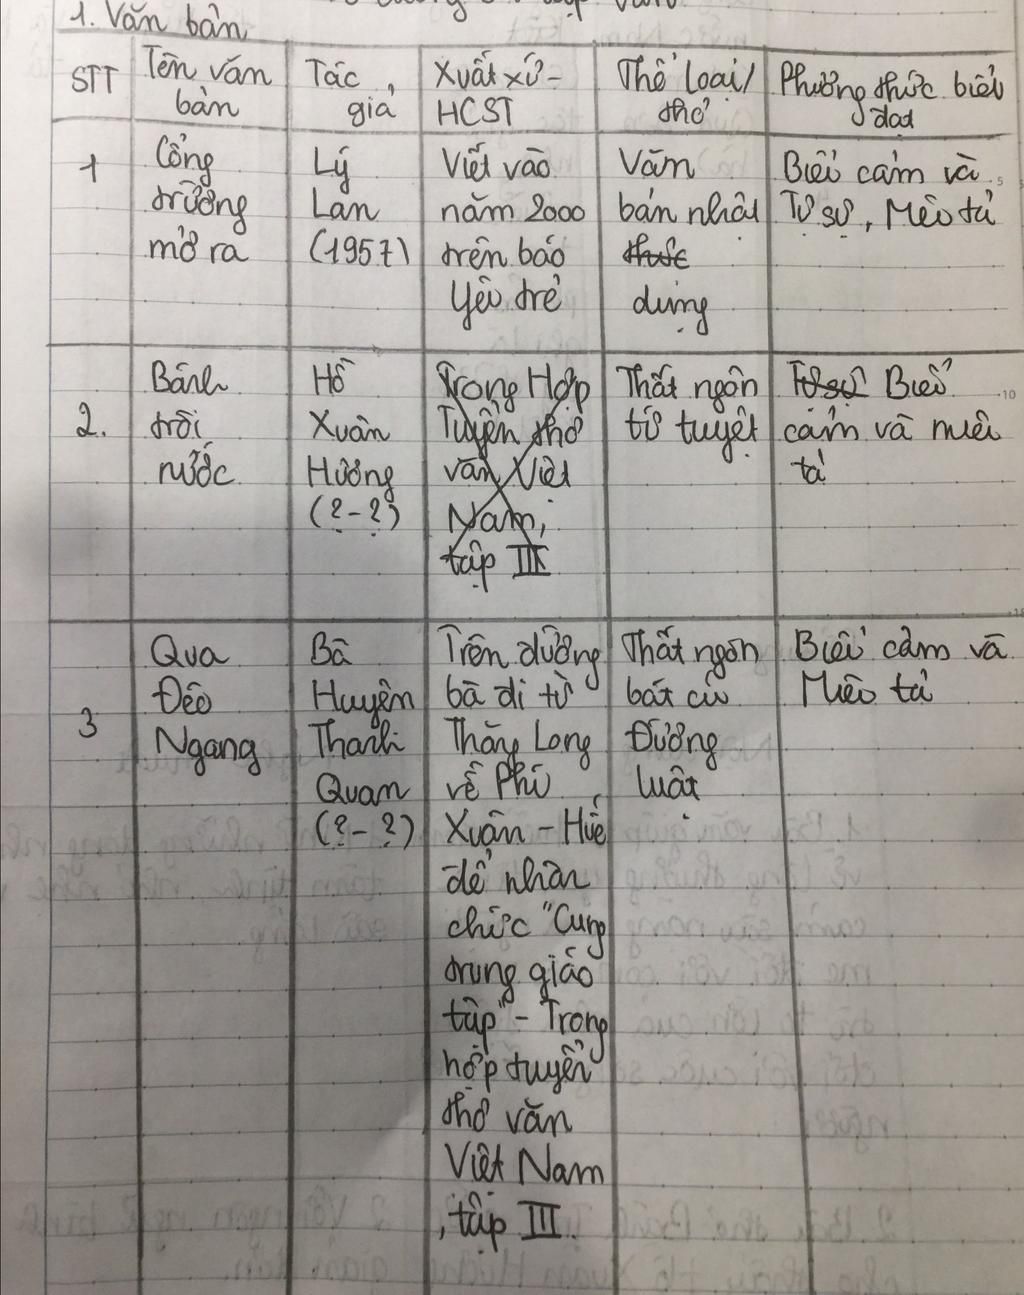 1. Văn bản
STT
Tên văn
bản
Tác
giả
Xuất xứ -
HCST
Thể loại/
thơ
Phương thức biểu
đạt
1
Cổng
trường
mở ra
Lý
Lan
(1957)
Viết vào
năm 2000
trên báo
Yêu trẻ
Văn
bản nhật
thức
dụng
Biểu cảm và
Tự sự, Miêu tả
2.
Bánh
trôi
nước
Hồ
Xuân
Hương
(?-?)
Trong Hợp
Tuyển thơ
văn Việt
Nam,
tập III
Thất ngôn
tứ tuyệt
Tự sự Biểu
cảm và miêu
tả
3
Qua
Đèo
Ngang
Bà
Huyện
Thanh
Quan
(?-?)
Trên đường
bà đi từ
Thăng Long
về Phú
Xuân - Huế
để nhận
chức "Cung
trung giáo
tập" - Trong
hợp tuyển
thơ văn
Việt Nam
, tập III.
Thất ngôn
bát cú
Đường
luật
Biểu cảm và
Miêu tả